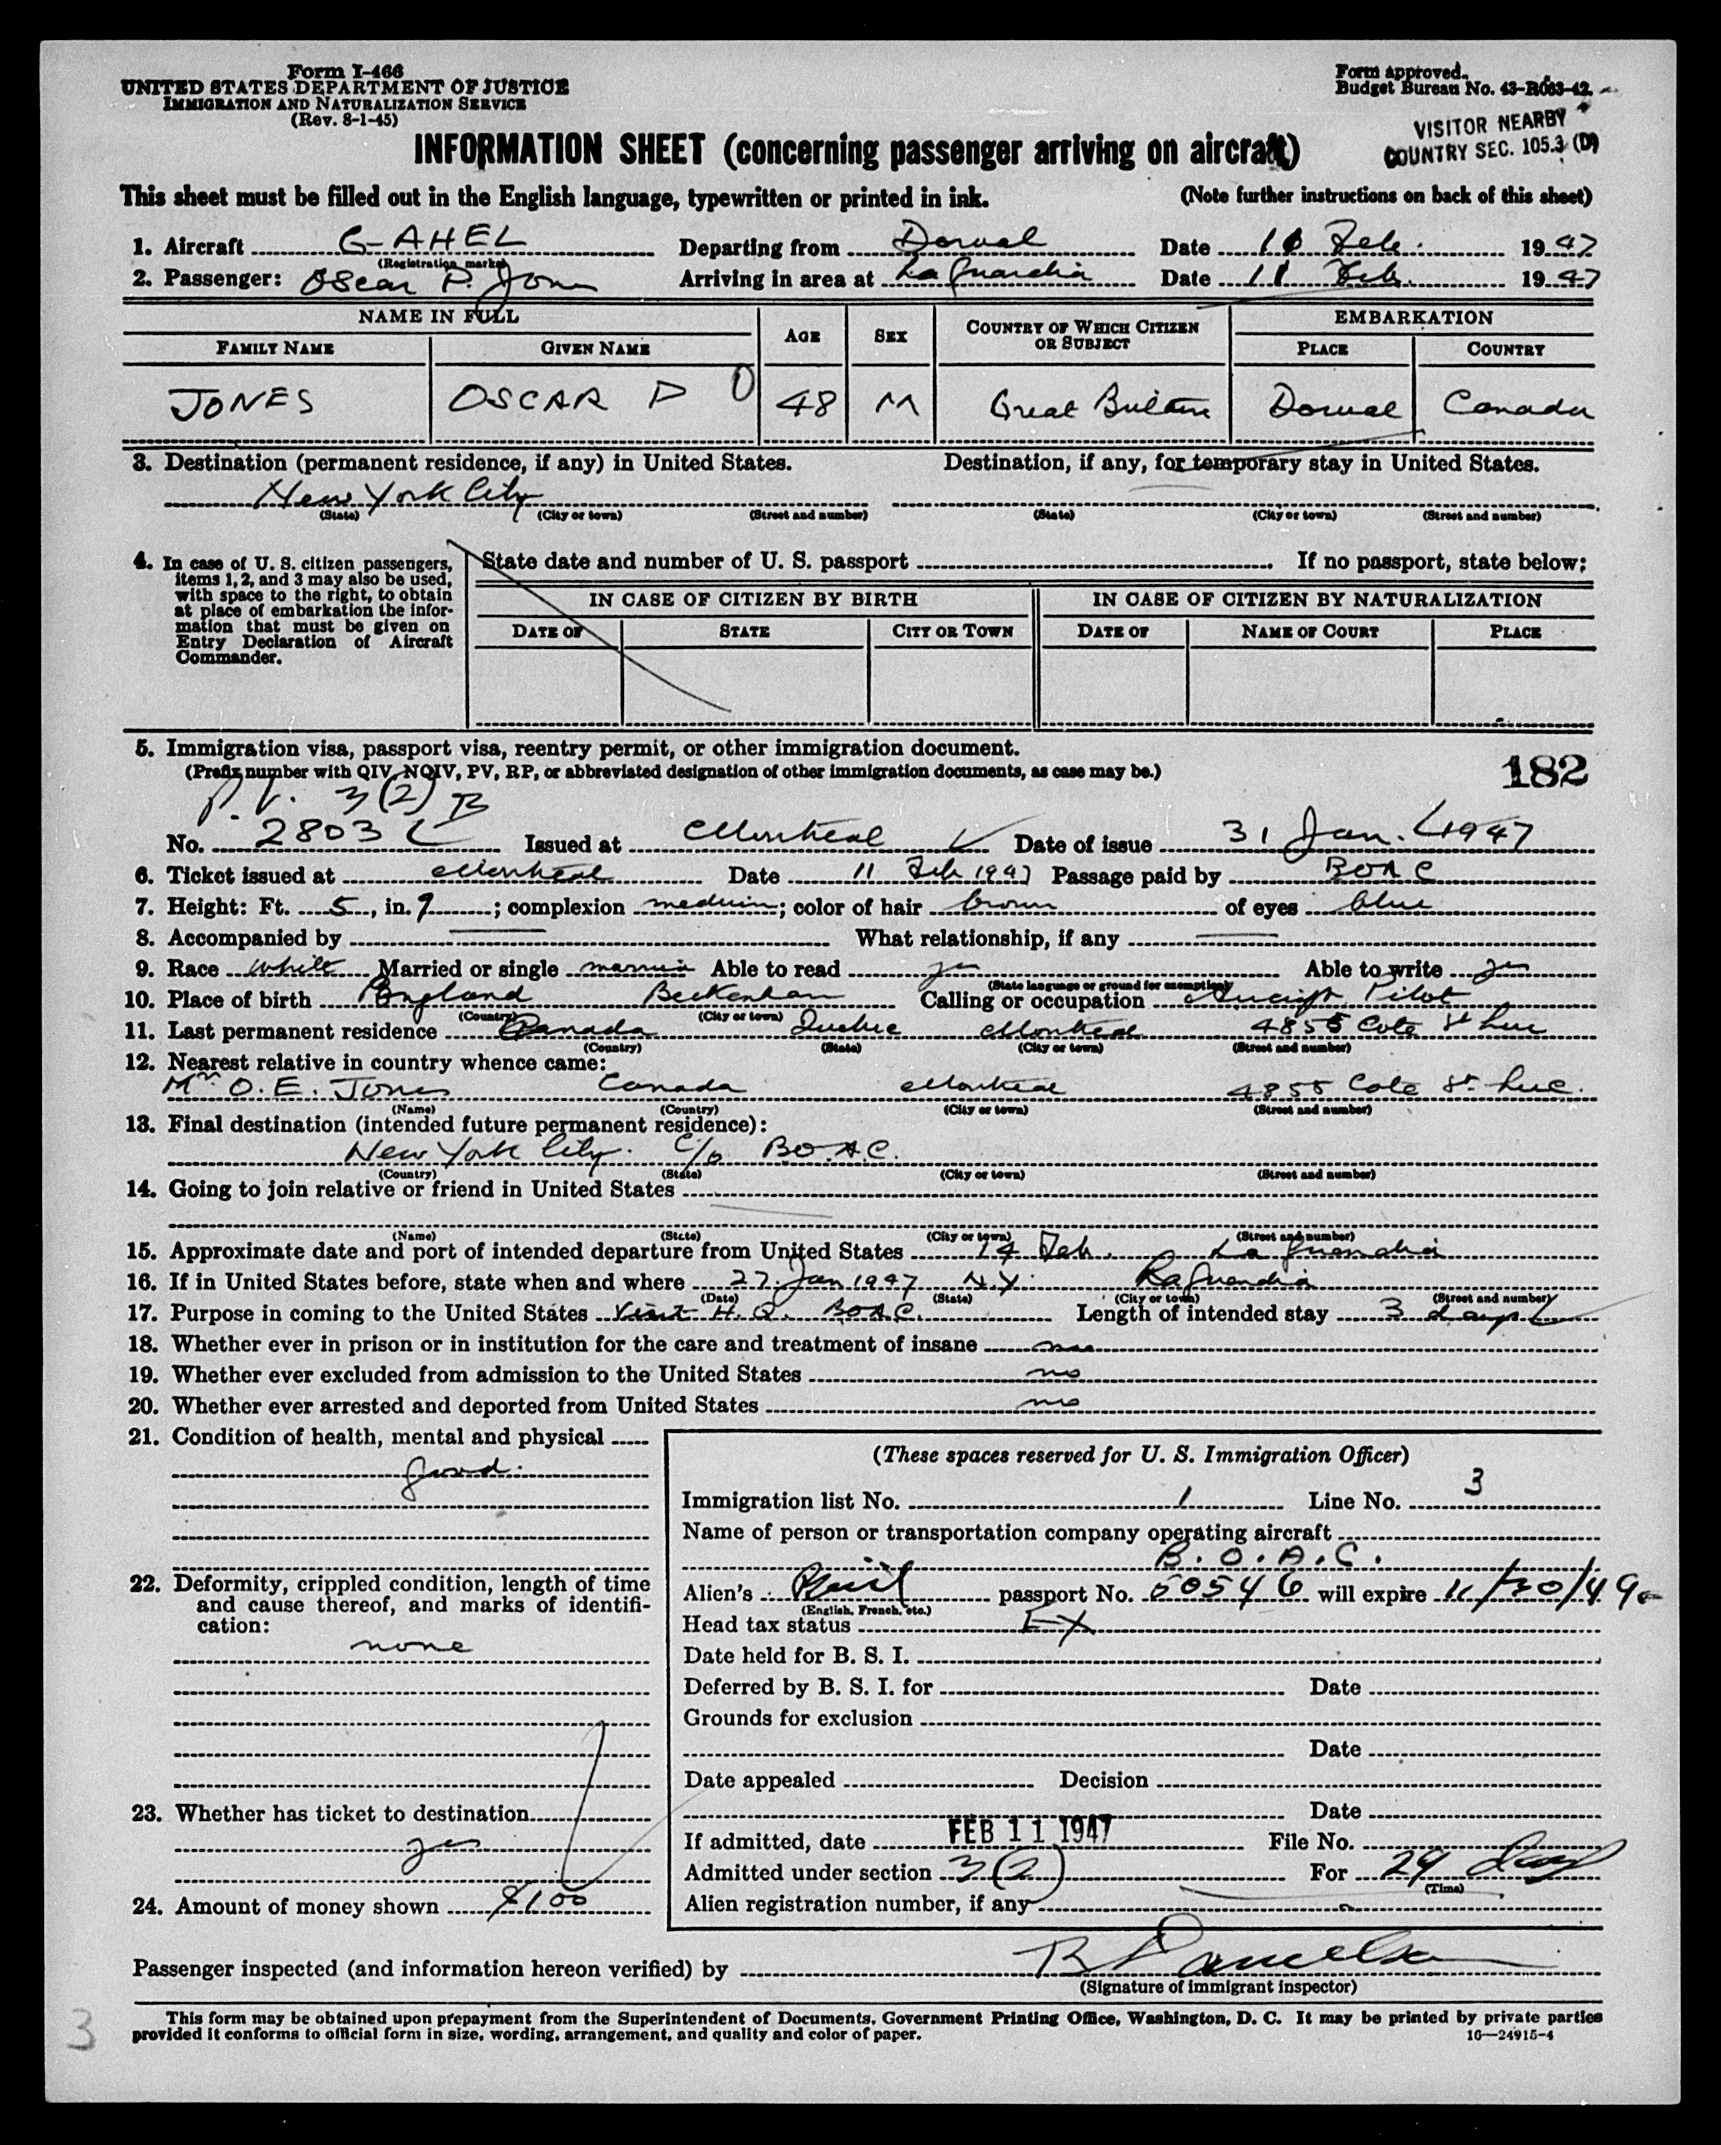 Form I-466
UNITED STATES DEPARTMENT OF JUSTICE
IMMIGRATION AND NATURALIZATION SERVICE
(Rev. 8-1-45)
Form approved.
Budget Bureau No. 43-R083-42.
VISITOR NEARBY
COUNTRY SEC. 105.3 (D)
INFORMATION SHEET (concerning passenger arriving on aircraft)
This sheet must be filled out in the English language, typewritten or printed in ink. (Note further instructions on back of this sheet)
1. Aircraft G-AHEL Departing from Dorval Date 11 Feb. 1947
(Registration marks)
2. Passenger: Oscar P. Jones Arriving in area at La Guardia Date 11 Feb. 1947
NAME IN FULL AGE SEX COUNTRY OF WHICH CITIZEN OR SUBJECT EMBARKATION
FAMILY NAME GIVEN NAME PLACE COUNTRY
JONES OSCAR P 48 M Great Britain Dorval Canada
3. Destination (permanent residence, if any) in United States. Destination, if any, for temporary stay in United States.
New York City
(State) (City or town) (Street and number) (State) (City or town) (Street and number)
4. In case of U. S. citizen passengers, items 1, 2, and 3 may also be used, with space to the right, to obtain at place of embarkation the information that must be given on Entry Declaration of Aircraft Commander.
State date and number of U. S. passport If no passport, state below:
IN CASE OF CITIZEN BY BIRTH IN CASE OF CITIZEN BY NATURALIZATION
DATE OF STATE CITY OR TOWN DATE OF NAME OF COURT PLACE
5. Immigration visa, passport visa, reentry permit, or other immigration document.
(Prefix number with QIV, NQIV, PV, RP, or abbreviated designation of other immigration documents, as case may be.)
182
P.V. 3(2) B
No. 2803 Issued at Montreal Date of issue 31 Jan. 1947
6. Ticket issued at Montreal Date 11 Feb 1947 Passage paid by BOAC
7. Height: Ft. 5, in. 9; complexion medium; color of hair brown of eyes blue
8. Accompanied by What relationship, if any
9. Race white Married or single married Able to read yes Able to write yes
(State language or ground for exemption)
10. Place of birth England Beckenham Calling or occupation Aircraft Pilot
(Country) (City or town)
11. Last permanent residence Canada Quebec Montreal 4855 Cote St Luc
(Country) (State) (City or town) (Street and number)
12. Nearest relative in country whence came:
Mrs O. E. Jones Canada Montreal 4855 Cote St. Luc.
(Name) (Country) (City or town) (Street and number)
13. Final destination (intended future permanent residence):
New York City. c/o B.O.A.C.
(Country) (State) (City or town) (Street and number)
14. Going to join relative or friend in United States
(Name) (State) (City or town) (Street and number)
15. Approximate date and port of intended departure from United States 14 Feb. La Guardia
16. If in United States before, state when and where 27. Jan 1947 N.Y. La Guardia
(Date) (State) (City or town) (Street and number)
17. Purpose in coming to the United States Visit H.Q. BOAC. Length of intended stay 3 days
18. Whether ever in prison or in institution for the care and treatment of insane no
19. Whether ever excluded from admission to the United States no
20. Whether ever arrested and deported from United States no
21. Condition of health, mental and physical
good.
22. Deformity, crippled condition, length of time and cause thereof, and marks of identification:
none
23. Whether has ticket to destination
yes
24. Amount of money shown $100
(These spaces reserved for U. S. Immigration Officer)
Immigration list No. 1 Line No. 3
Name of person or transportation company operating aircraft
B.O.A.C.
Alien's passport No. 50546 will expire 11/30/49
(English, French, etc.)
Head tax status EX
Date held for B. S. I.
Deferred by B. S. I. for Date
Grounds for exclusion
Date
Date appealed Decision
Date
If admitted, date FEB 11 1947 File No.
Admitted under section 3(2) For 29 days
(Time)
Alien registration number, if any
Passenger inspected (and information hereon verified) by
(Signature of immigrant inspector)
This form may be obtained upon prepayment from the Superintendent of Documents, Government Printing Office, Washington, D. C. It may be printed by private parties
provided it conforms to official form in size, wording, arrangement, and quality and color of paper.
16—24915-4
3